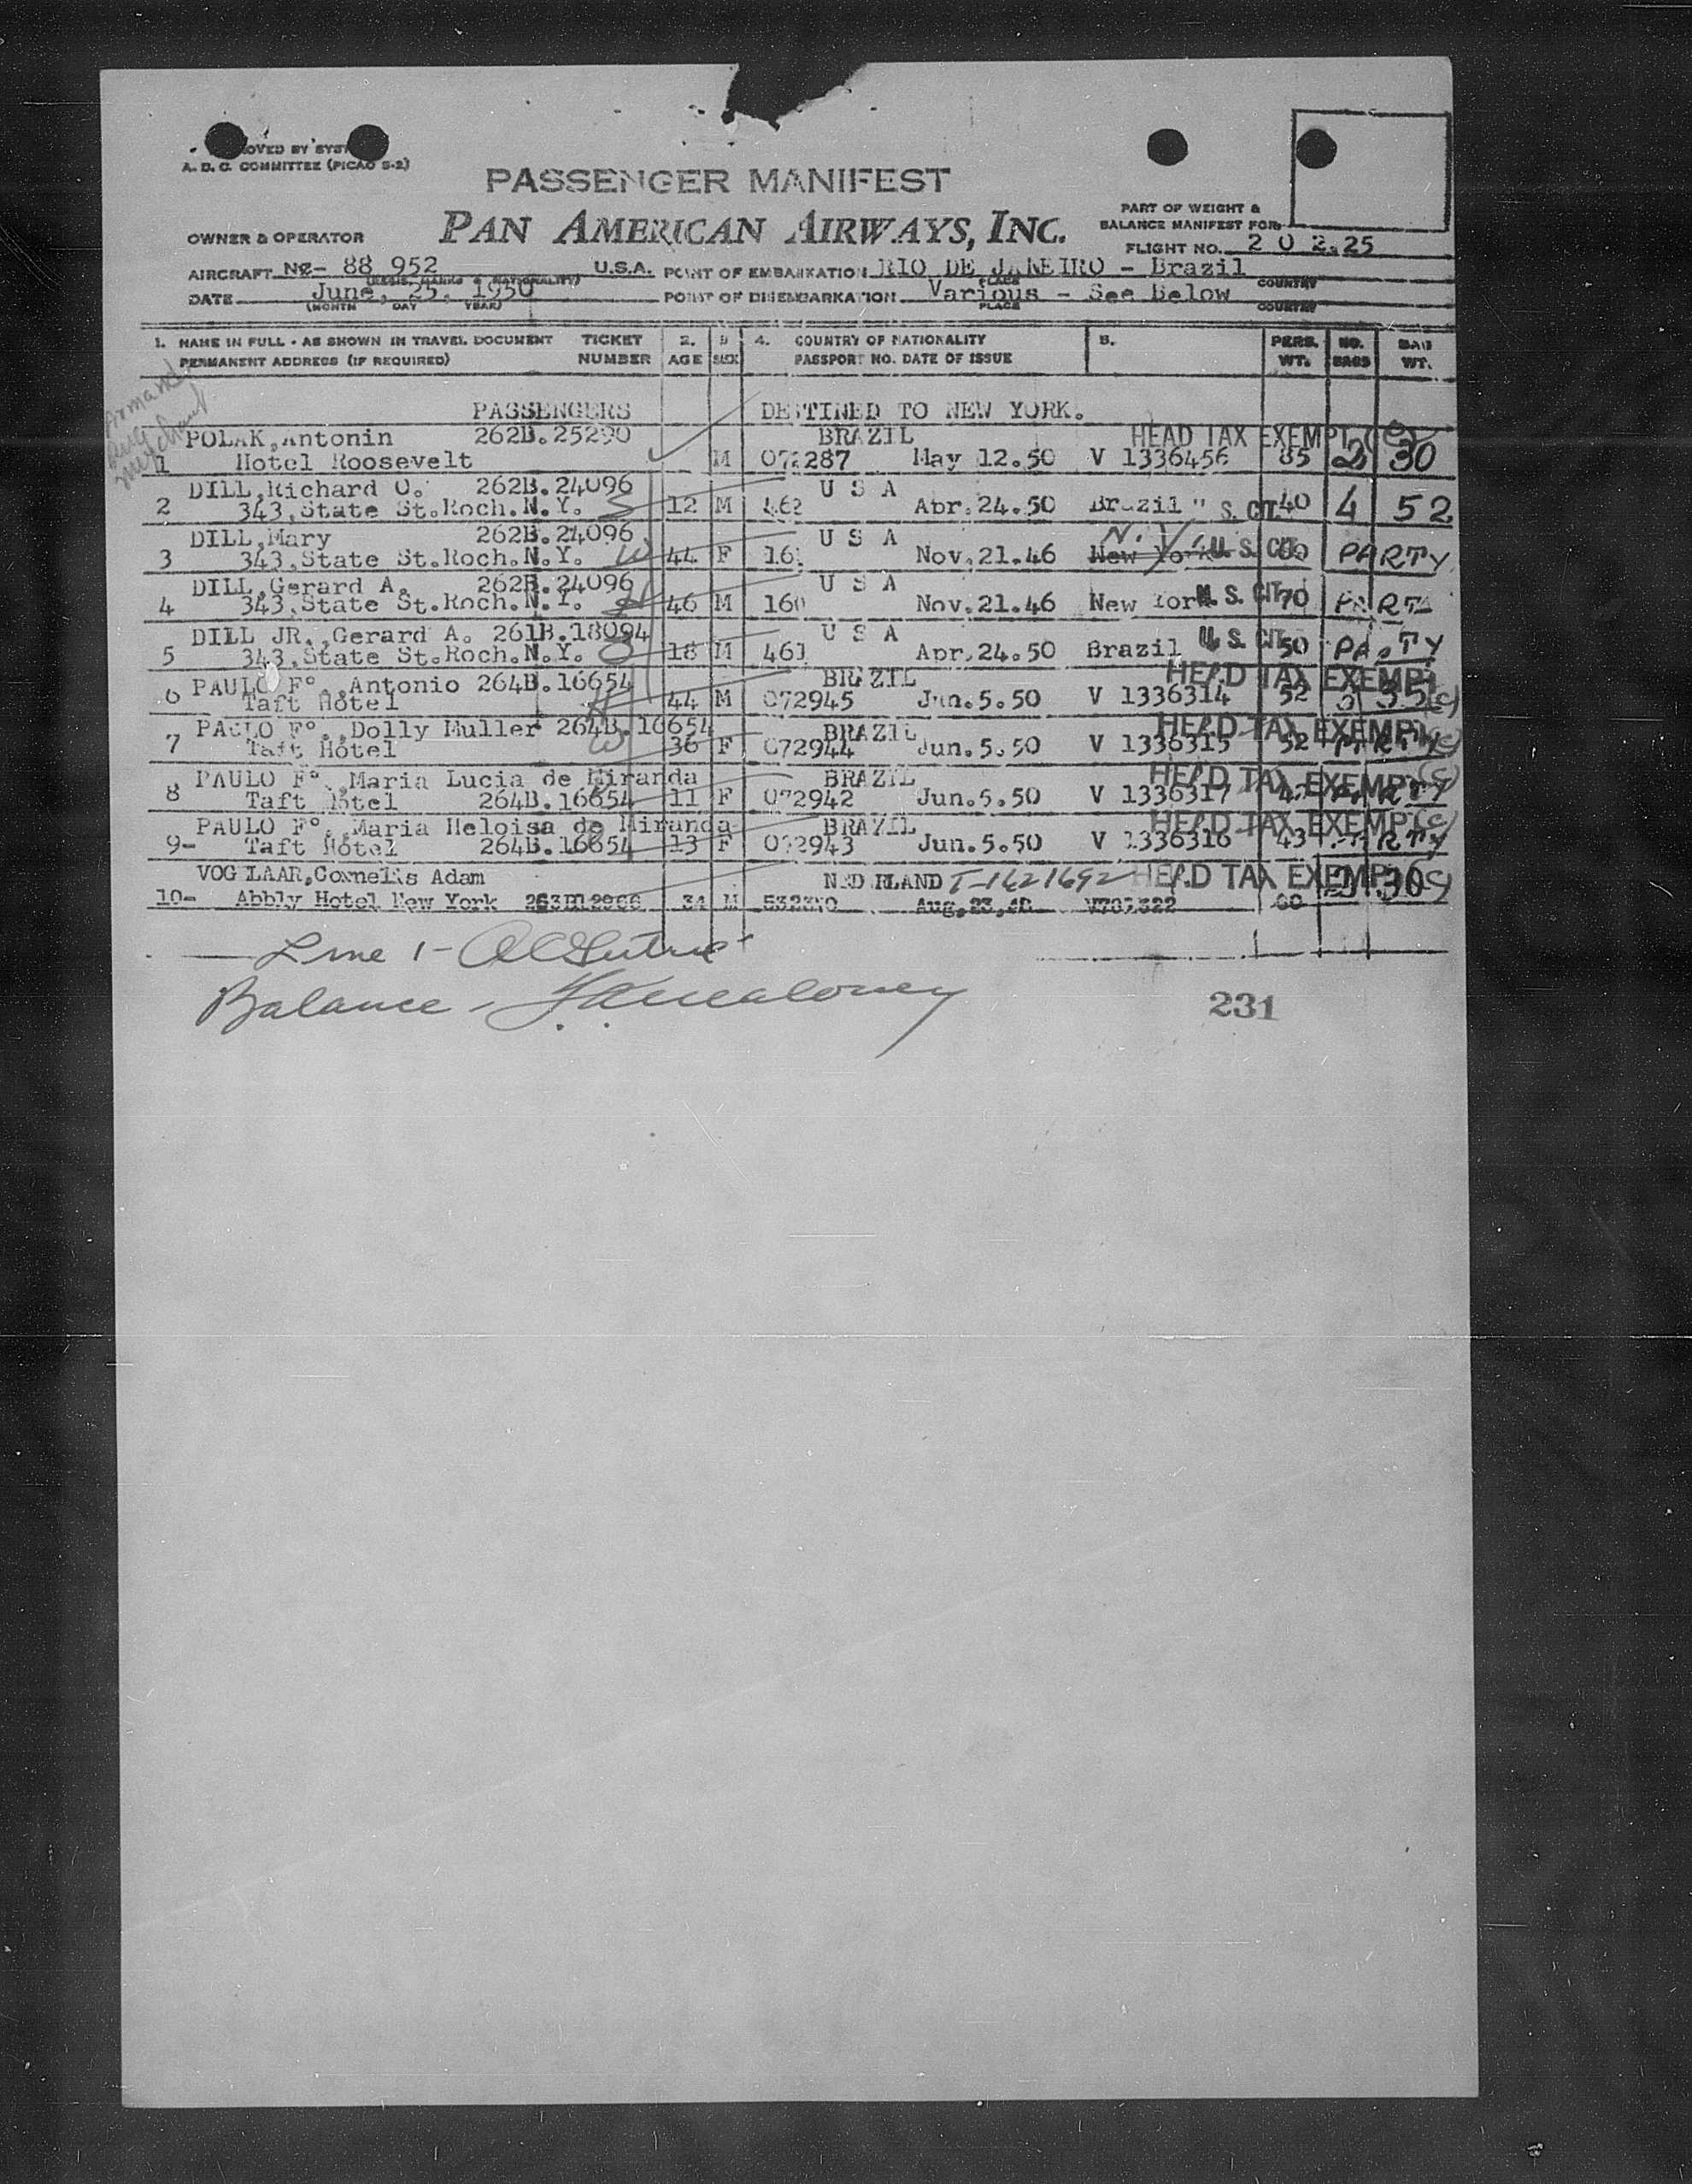 A. D. C. COMMITTEE (PICAO S-2)
PASSENGER MANIFEST
PAN AMERICAN AIRWAYS, INC.
OWNER & OPERATOR
PART OF WEIGHT &
BALANCE MANIFEST FOR
FLIGHT NO. 2 0 2.25
AIRCRAFT 88 952 U.S.A. POINT OF EMBARKATION RIO DE JANEIRO - Brazil
PLACE COUNTRY
DATE June, 25, 1950 POINT OF DISEMBARKATION Various - See Below
(MONTH DAY YEAR) PLACE COUNTRY
1. NAME IN FULL - AS SHOWN IN TRAVEL DOCUMENT TICKET 2. 3 4. COUNTRY OF NATIONALITY 5. PERS. NO. BAG
PERMANENT ADDRESS (IF REQUIRED) NUMBER AGE SEX PASSPORT NO. DATE OF ISSUE WT. BAGS WT.
PASSENGERS DESTINED TO NEW YORK.
POLAK, Antonin 262B.25290 BRAZIL HEAD TAX EXEMPT (c)
1 Hotel Roosevelt M 072287 May 12.50 V 1336456 85 2 30
DILL, Richard O. 262B.24096 U S A
2 343, State St.Roch.N.Y. S 12 M 462 Apr.24.50 Brazil S. CIT. 40 4 52
DILL, Mary 262B.24096 U S A N. Y.
3 343, State St.Roch.N.Y. W 44 F 161 Nov.21.46 New York U. S. CIT. PARTY
DILL, Gerard A. 262B.24096 U S A
4 343, State St.Roch.N.Y. 46 M 160 Nov.21.46 New York U. S. CIT. 70 PARTY
DILL JR., Gerard A. 261B.18094 U S A
5 343, State St.Roch.N.Y. S 18 M 461 Apr.24.50 Brazil U. S. CIT. 50 PARTY
PAULO Fº., Antonio 264B.16654 BRAZIL HEAD TAX EXEMPT (c)
6 Taft Hôtel 44 M 072945 Jun.5.50 V 1336314 52
PAULO Fº., Dolly Muller 264B.16654 BRAZIL HEAD TAX EXEMPT (c)
7 Taft Hôtel W 36 F 072944 Jun.5.50 V 1336315 52 PARTY
PAULO Fº., Maria Lucia de Miranda BRAZIL HEAD TAX EXEMPT (c)
8 Taft Hôtel 264B.16654 11 F 072942 Jun.5.50 V 1336317 PARTY
PAULO Fº., Maria Heloisa de Miranda BRAZIL HEAD TAX EXEMPT (c)
9- Taft Hôtel 264B.16654 13 F 072943 Jun.5.50 V 1336316 43 PARTY
VOGELAAR, Cornelis Adam NEDERLAND T-1621692 HEAD TAX EXEMPT (c)
10- Abbly Hotel New York 34 M Aug,23,48 V702322 60 30
Line 1 -
Balance - Maloney
231